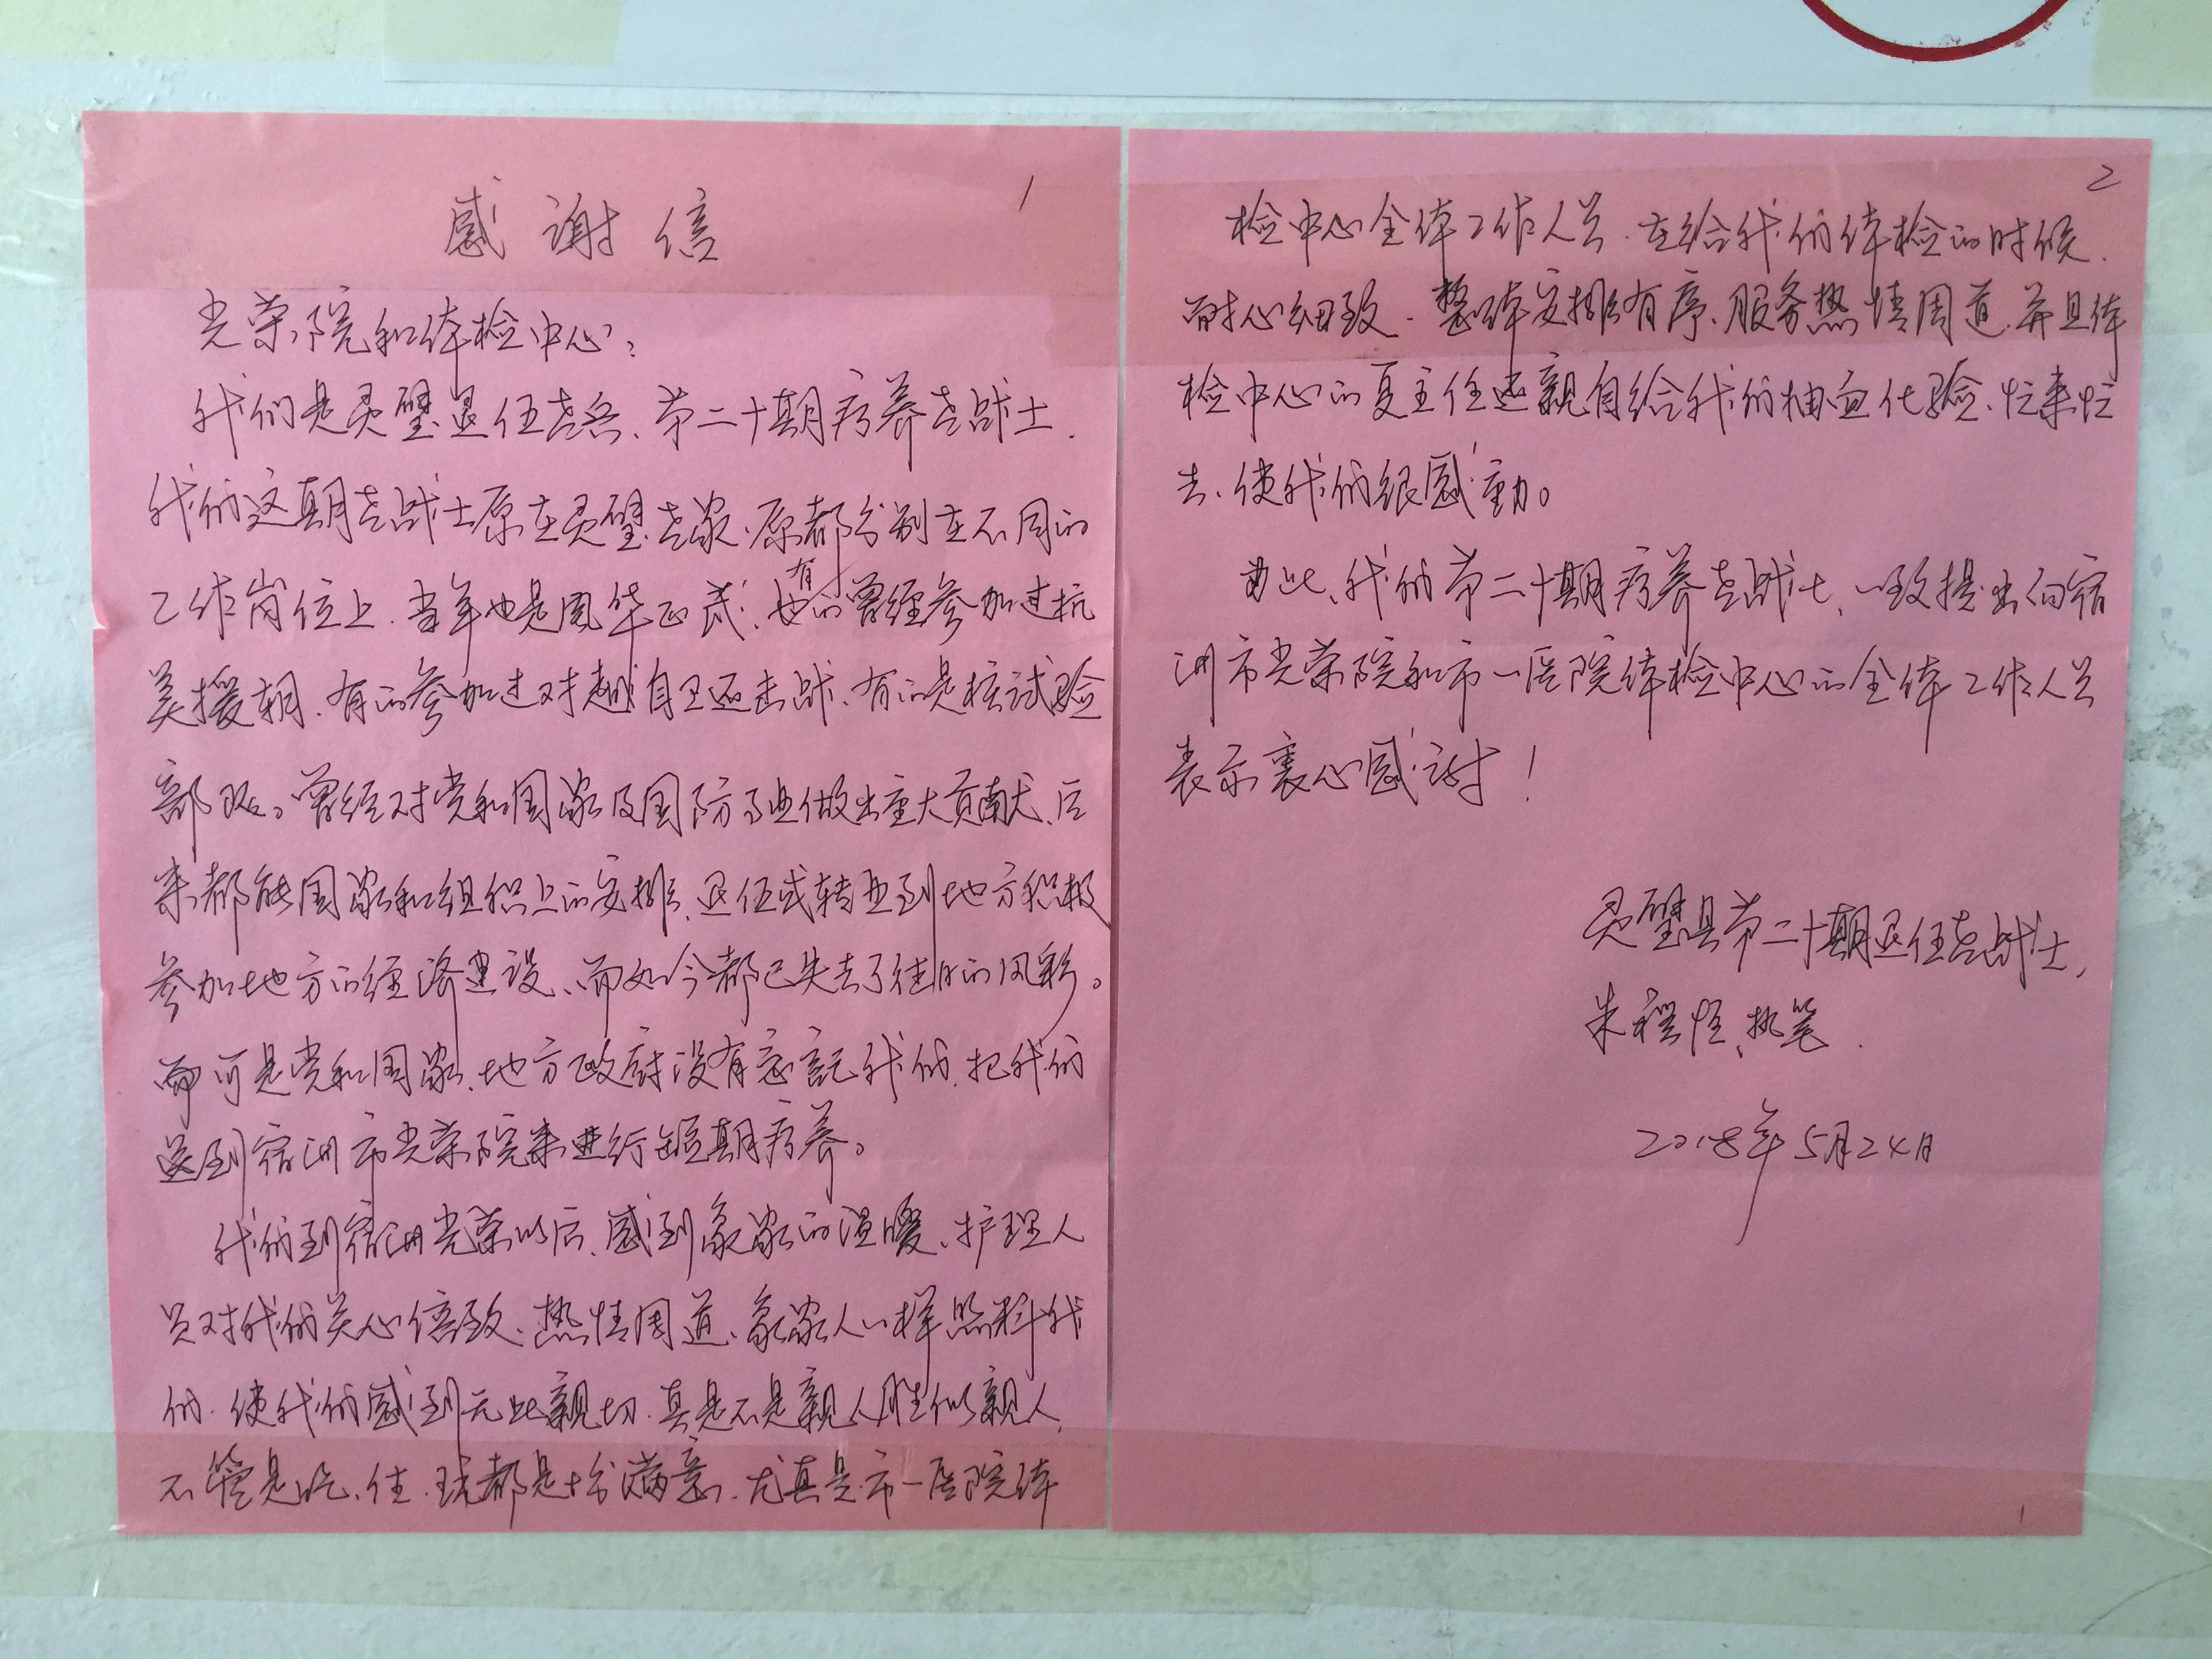 1
感谢信
光荣院和体检中心:
我们是灵璧退伍老兵、第二十期疗养老战士.
我们这期老战士原在灵璧老家、原都分别在不同的
工作岗位上.当年也是风华正茂;有的曾经参加过抗
美援朝、有的参加过对越自卫还击战、有的是核试验
部队。曾经对党和国家及国防事业做出重大贡献、后
来都能国家和组织上的安排、退伍或转业到地方积极
参加地方的经济建设、而如今都已失去了往日的风彩。
可是党和国家、地方政府没有忘記我们.把我们
送到宿洲市光荣院来进行短期疗养。
我们到宿洲光荣以后、感到象家的温暖、护理人
员对我们关心倍致、热情周道、象家人一样照料我
们.使我们感到无比親切.真是不是親人胜似親人.
不管是吃、住.玩都是十分满意.尤其是市一医院体
2
检中心全体工作人员.在给我们体检的时候.
耐心细致.整体安排有序、服务热情周道.并且体
检中心的夏主任还親自给我们抽血化验、忙来忙
去、使我们很感動。
由此、我们第二十期疗养老战士、一致提出向宿
洲市光荣院和市一医院体检中心的全体工作人员
表示衷心感谢!
灵璧县第二十期退伍老战士,
朱程 执笔.
2018年5月24日